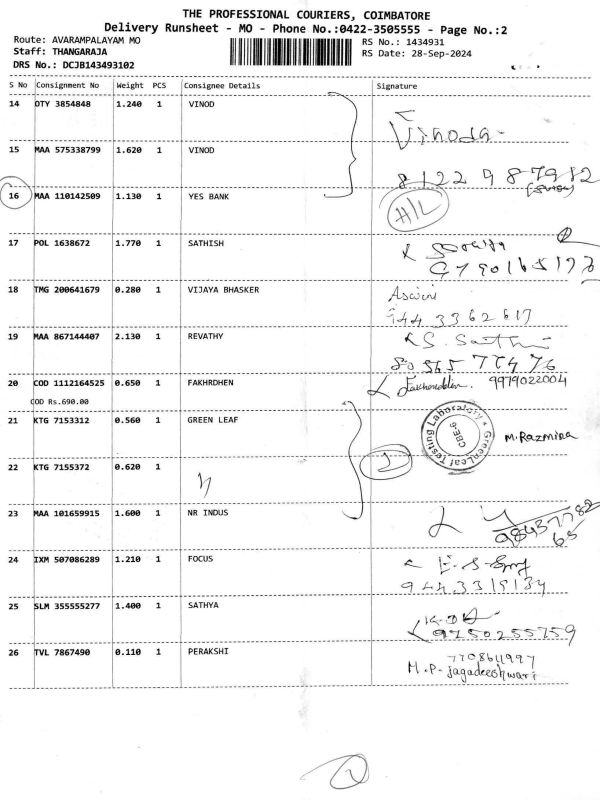 THE PROFESSIONAL COURIERS, COIMBATORE
Delivery Runsheet - MO - Phone No.:0422-3505555 - Page No.:2
Route: AVARAMPALAYAM MO
Staff: THANGARAJA
DRS No.: DCJB143493102
RS No.: 1434931
RS Date: 28-Sep-2024
S No Consignment No Weight PCS Consignee Details Signature
14 OTY 3854848 1.240 1 VINOD
15 MAA 575338799 1.620 1 VINOD
8122987982
16 MAA 110142509 1.130 1 YES BANK H/L
17 POL 1638672 1.770 1 SATHISH
18 TMG 200641679 0.280 1 VIJAYA BHASKER Aswini
944 3362617
19 MAA 867144407 2.130 1 REVATHY
20 COD 1112164525 0.650 1 FAKHRDHEN 9979022004
COD Rs.690.00
21 KTG 7153312 0.560 1 GREEN LEAF
GreenLeaf Testing Laboratory
CBE-6
M. Razmina
22 KTG 7155372 0.620 1
23 MAA 101659915 1.600 1 NR INDUS
9843778265
24 IXM 507086289 1.210 1 FOCUS
9443315134
25 SLM 355555277 1.400 1 SATHYA
9750255759
26 TVL 7867490 0.110 1 PERAKSHI 7708611997
M.P. Jagadeeshwari